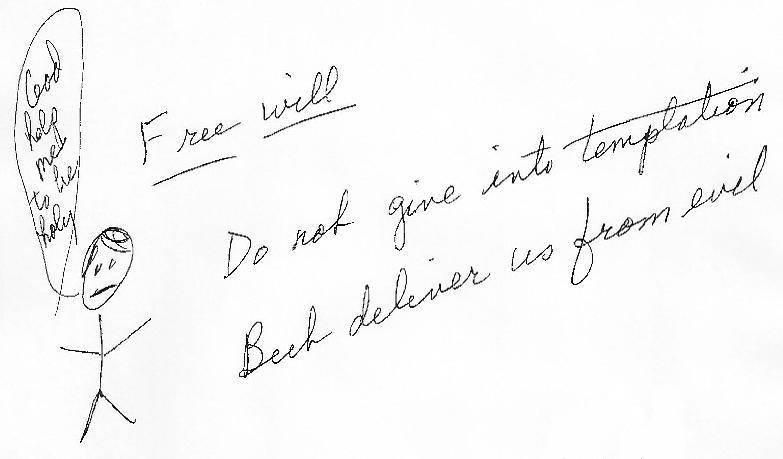 God
help
me
to be
holy
Free will
Do not give into temptation
But deliver us from evil